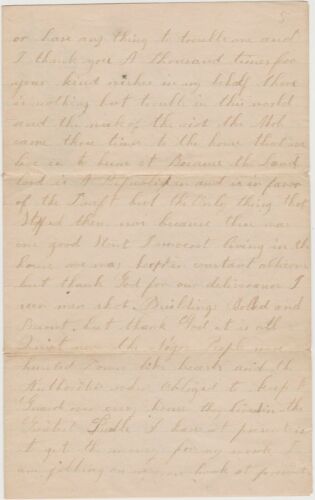 5
or have any thing to trouble me and
I thank you A thousand times for
your kind wishes in my behalf there
is nothing but trouble in this world
and the week of the riot the Mob
came three times to the house that we
live in to burn it Because the Land
lord is A Republican and is in favor
of the Draft but the only thing that
them was because there was
one good Innocent living in the
house we was kept in constant
but thank God for our deliverance I
seen men shot Buildings Robed and
Burnt but thank God it is all
Quiet now the People was
hunted Down like bears and the
Authorities was obliged to keep A
Guard over every house they lived in the
I have at present is
to get the money for my work I
am jobbing on my own hook at present